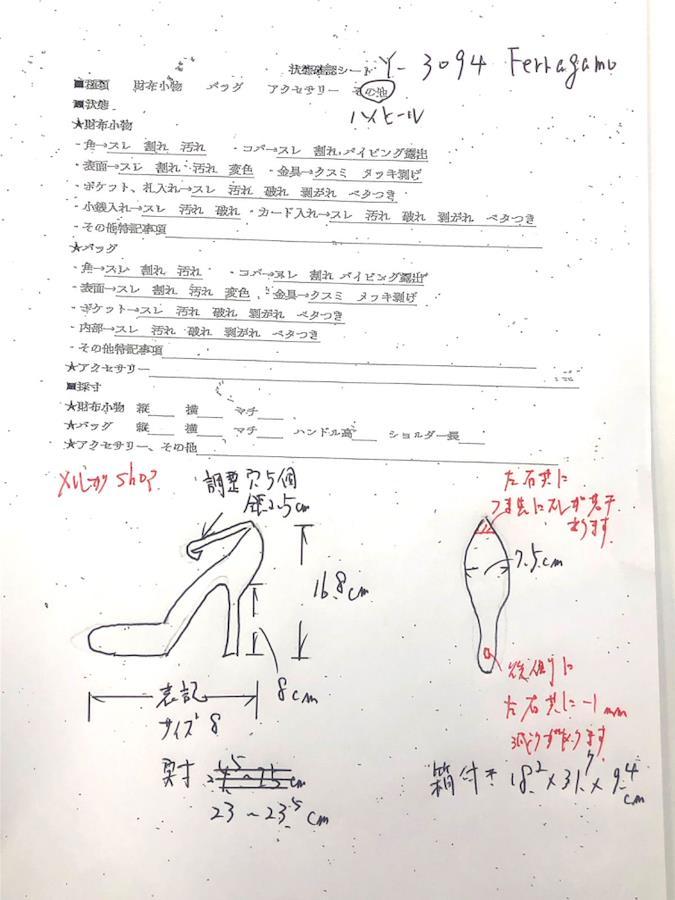 状態確認シート Y-3094 Ferragamo
■種類 財布小物 バッグ アクセサリー その他
ハイヒール
■状態
★財布小物
・角→スレ 割れ 汚れ ・コバ→スレ 割れ パイピング露出
・表面→スレ 割れ 汚れ 変色 ・金具→クスミ メッキ剥げ
・ポケット、札入れ→スレ 汚れ 破れ 剥がれ ベタつき
・小銭入れ→スレ 汚れ 破れ ・カード入れ→スレ 汚れ 破れ 剥がれ ベタつき
・その他特記事項
★バッグ
・角→スレ 割れ 汚れ ・コバ→スレ 割れ パイピング露出
・表面→スレ 割れ 汚れ 変色 ・金具→クスミ メッキ剥げ
・ポケット→スレ 汚れ 破れ 剥がれ ベタつき
・内部→スレ 汚れ 破れ 剥がれ ベタつき
・その他特記事項
★アクセサリー
■採寸
★財布小物 縦 横 マチ
★バッグ 縦 横 マチ ハンドル高 ショルダー長
★アクセサリー、その他
メルカリ shop
調整穴5個
2.5cm
16.8cm
8cm
表記
サイズ 8
実寸
23〜23.5cm
左右共に
つま先にスレが若干
あります
7.5cm
後側に
左右共に-1mm
減りがあります
箱付き 18.2×31.7×9.4cm